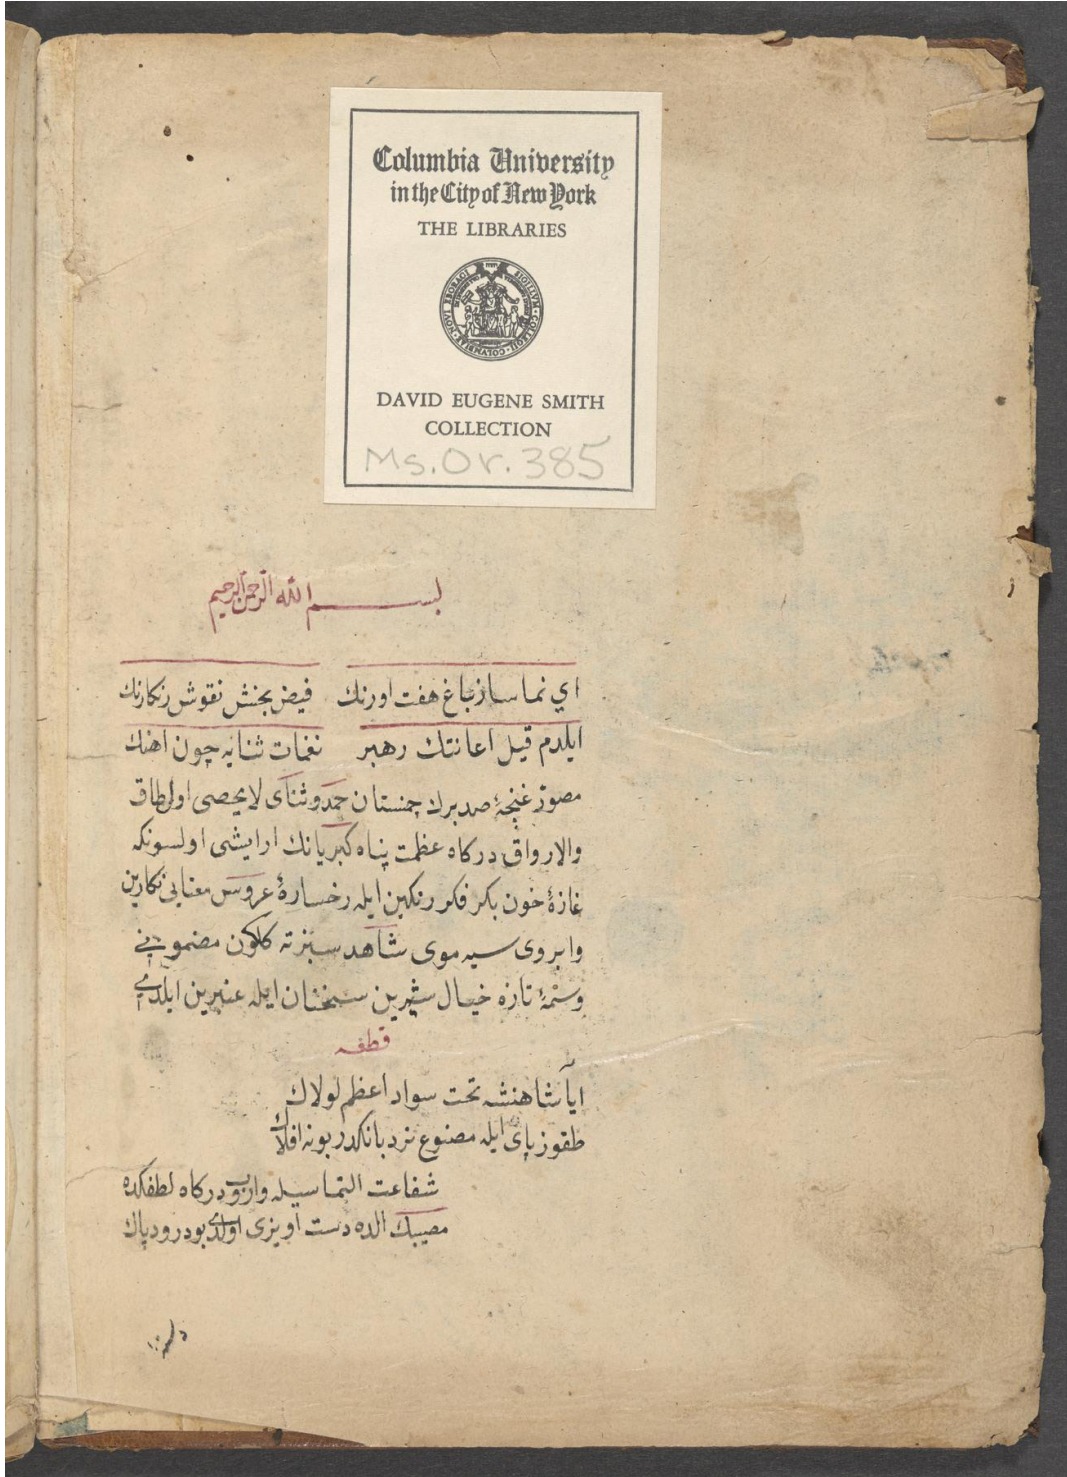 Columbia University
in the City of New York
THE LIBRARIES
DAVID EUGENE SMITH
COLLECTION
Ms. Or. 385
بسم الله الرحمن الرحيم
اي نما ساز باغ هفت اورنك فيض بخش نقوش رنكارنك
ايلدم قيل اعانتك رهبر نغمات ثنايه چون اهنك
مصور غنچۀ صد برك چمنستان حمد و ثناى لايحصى اول طاق
والا رواق دركاه عظمت پناه كبريانك ارايشى اولسونكه
غازۀ خون بكر فكر رنكين ايله رخسارۀ عروس معنايى نكارين
وابروى سيه موى شاهد سبز ته كلكون مضمونى
وسمۀ تازه خيال شيرين سخنان ايله عنبرين ايلدى
قطعه
ايا شاهنشه تخت سواد اعظم لولاك
طقوز پاى ايله مصنوع نردبانكدر بونه افلاك
شفاعت التماسيله واروب دركاه لطفكده
الده دست اويزى اولدى بو درود پاك